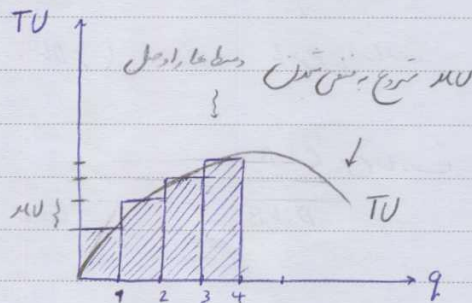 TU
وسط ها را وصل
MU شروع به منفی شدن
MU
TU
1 2 3 4
q